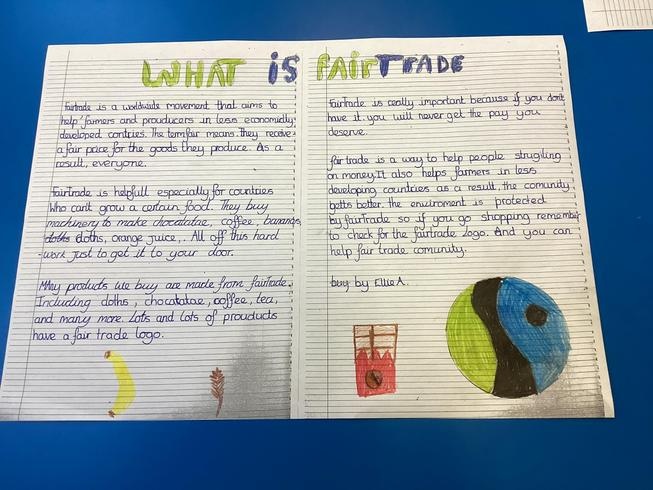 WHAT is FAirTRADE
Fairtrade is a worldwide movement that aims to
help farmers and prouducers in less economicly
developed contries. The term fair means. They receive
a fair pace for the goods they produce. As a
result, everyone.
FairTrade is helpfull especially for countries
Who can't grow a certain food. They buy
machinery to make chocalatae, coffee, bananas,
cloths, orange juice,. All off this hard
-work just to get it to your door.
Many products we buy are made from fairTrade.
Including cloths, chocatatae, coffee, tea,
and many more. Lots and lots of prouducts
have a fair trade logo.
FairTrade is really important because if you don't
have it. you will never get the pay you
deserve.
fair trade is a way to help people strugling
on money. It also helps farmers in less
developing countries as a result, the comunity
getts better. the enviroment is protected
by fairTrade so if you go shopping remember
to check for the fairtrade logo. And you can
help fair trade comunity.
by Ellie A.